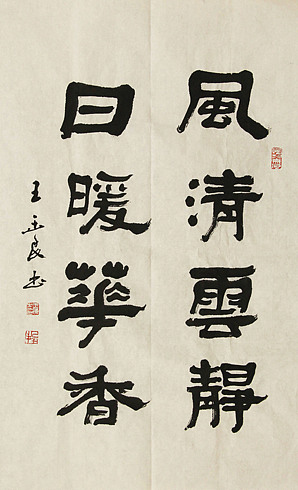 風清雲靜
日暖華香
王正良书